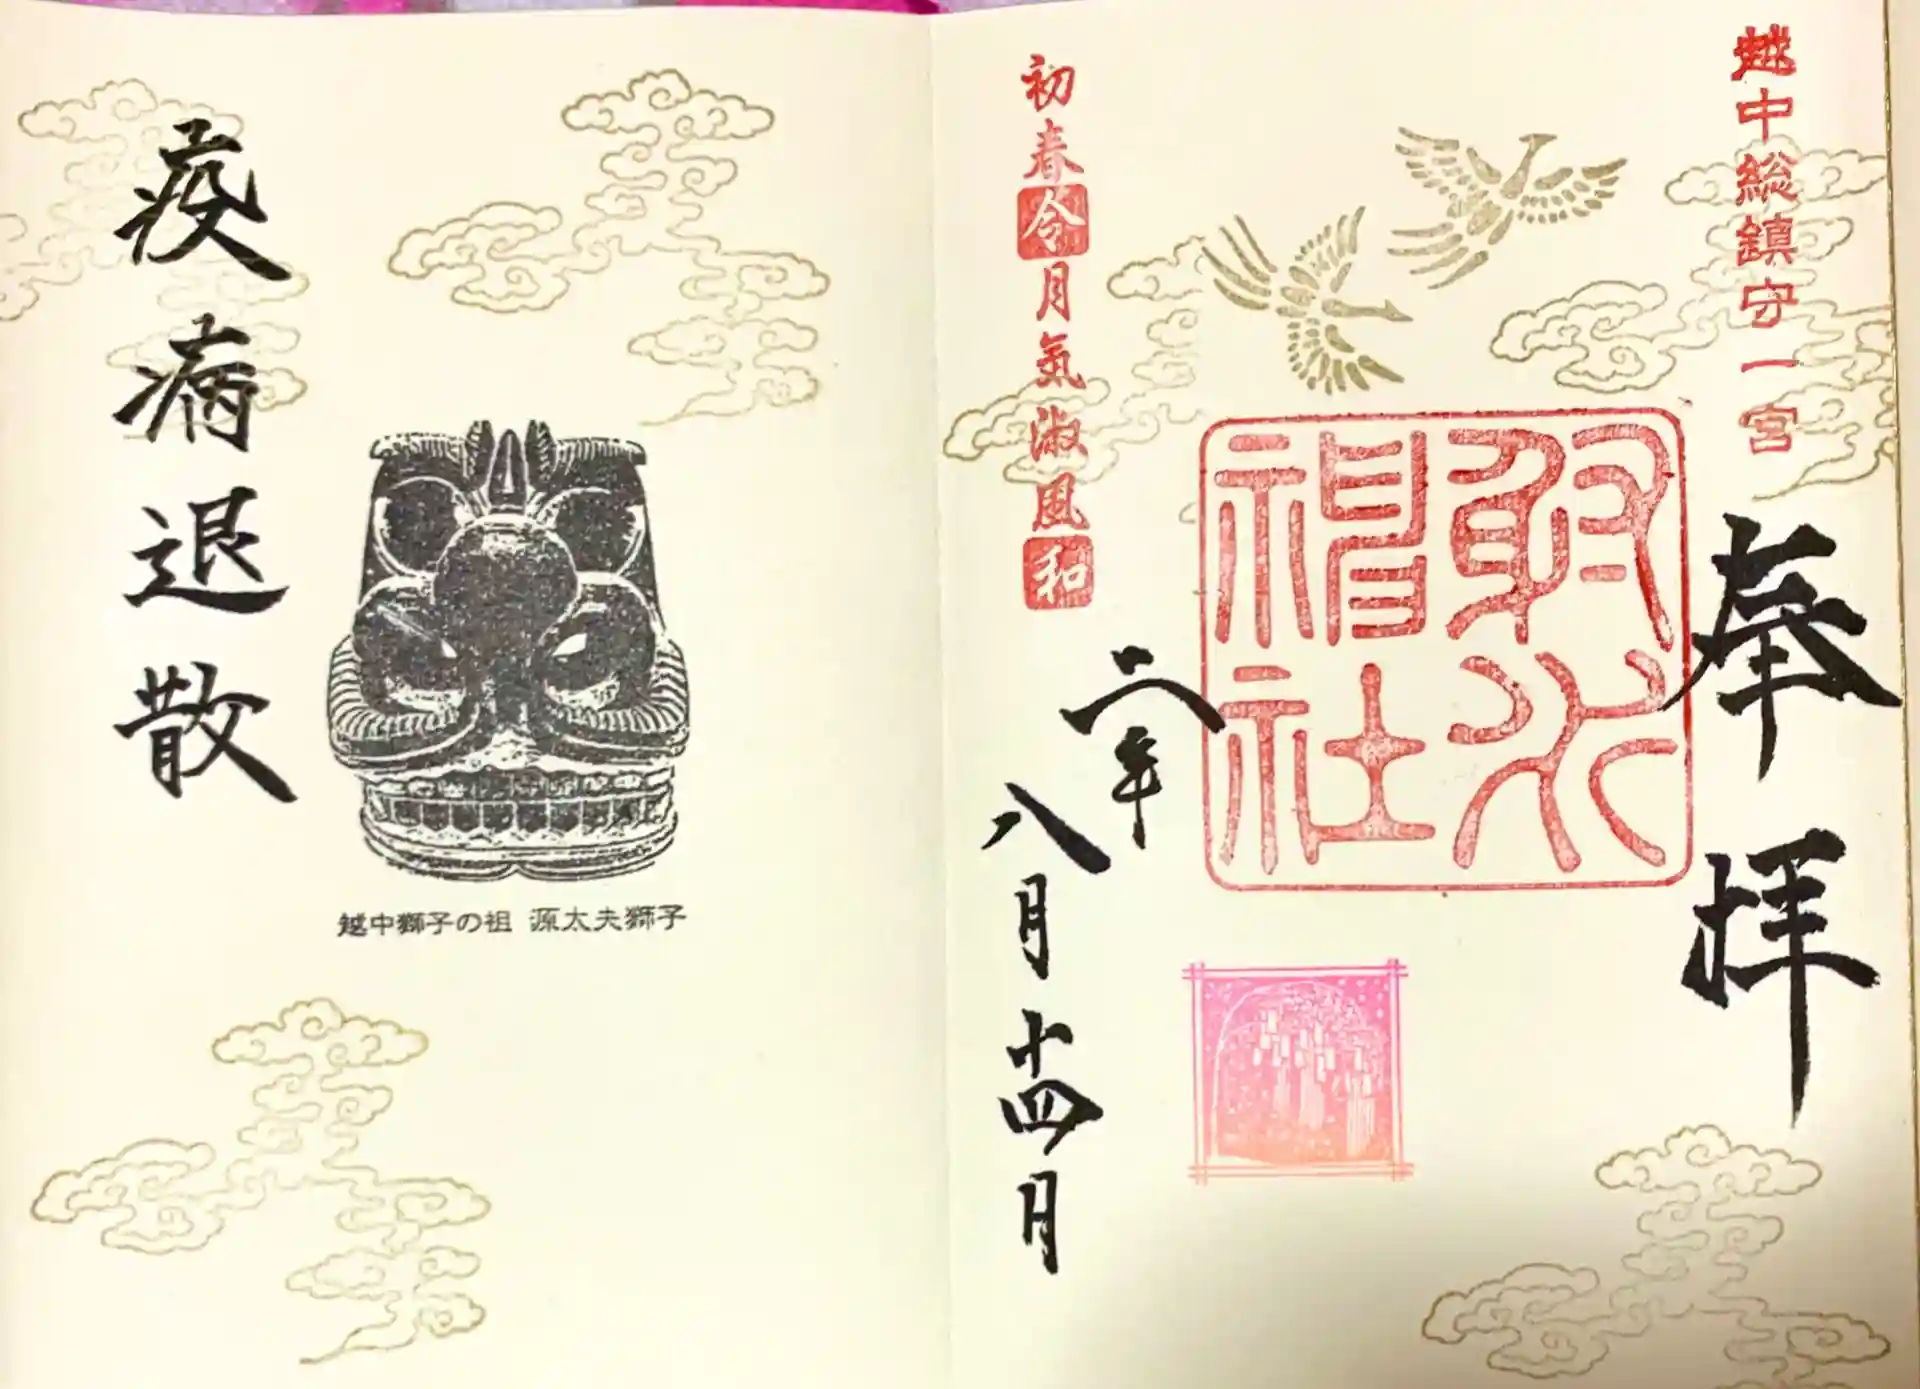 越中総鎮守一宮
奉拝
射水
神社
二年
八月十四日
初春令月氣淑風和
越中獅子の祖 源太夫獅子
疫病退散